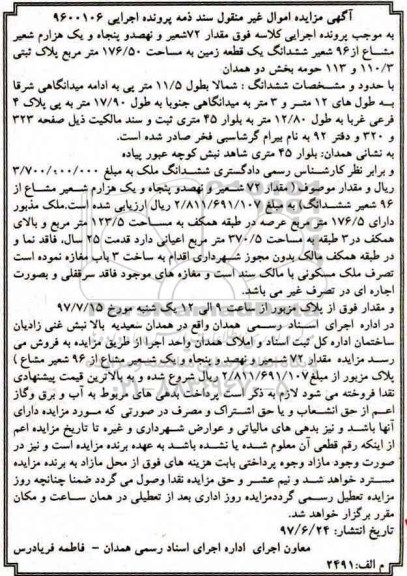 آگهی مزایده اموال غیر منقول سند ذمه پرونده اجرایی ۹۶۰۰۱۰۶
به موجب پرونده اجرایی کلاسه فوق مقدار ۷۲شعیر و نهصدو پنجاه و یک هزارم شعیر
مشاع از۹۶ شعیر ششدانگ یک قطعه زمین به مساحت ۱۷۶/۵۰ متر مربع پلاک ثبتی
۱۱۰/۳ و ۱۱۳ حومه بخش دو همدان
با حدود و مشخصات ششدانگ : شمالا بطول ۱۱/۵ متر پی به ادامه میدانگاهی شرقا
به طول های ۱۲ متر و ۳ متر به میدانگاهی جنوبا به طول ۱۷/۹۰ متر به پی پلاک ۴
فرعی غربا به طول ۱۲/۸۰ متر به بلوار ۴۵ متری ثبت و سند مالکیت ذیل صفحه ۳۲۳
و ۳۲۰ و دفتر ۹۲ به نام بیرام گرشاسبی فخر صادر شده است.
به نشانی همدان: بلوار ۴۵ متری شاهد نبش کوچه عبور پیاده
و برابر نظر کارشناس رسمی دادگستری ششدانگ ملک به مبلغ ۳/۷۰۰/۰۰۰/۰۰۰
ریال و مقدار موصوف( مقدار ۷۲ شعیر و نهصدو پنجاه و یک هزارم شعیر مشاع از
۹۶ شعیر ششدانگ) به مبلغ ۲/۸۱۱/۶۹۱/۱۰۷ ریال ارزیابی شده است.ملک مذبور
دارای ۱۷۶/۵ متر مربع عرصه در طبقه همکف به مساحت ۱۲۳/۵ متر مربع و بالای
همکف در۳ طبقه به مساحت ۳۷۰/۵ متر مربع اعیانی دارد قدمت ۲۵ سال، فاقد نما و
در طبقه همکف مالک بدون مجوز شهرداری اقدام به ساخت ۳ باب مغازه نموده است
تصرف ملک مسکونی با مالک سند است و مغازه های موجود فاقد سرقفلی و بصورت
اجاره ای در تصرف غیر می باشد.
و مقدار فوق از پلاک مزبور از ساعت ۹ الی ۱۲ یک شنبه مورخ ۹۷/۷/۱۵
در اداره اجرای اسناد رسمی همدان واقع در همدان سعیدیه بالا نبش غنی زادیان
ساختمان اداره کل ثبت اسناد و املاک همدان واحد اجرا از طریق مزایده به فروش می
رسد مزایده مقدار ۷۲ شعیر و نهصد و پنجاه و یک شعیر مشاع از ۹۶ شعیر مشاع )
پلاک مزبور از مبلغ ۲/۸۱۱/۶۹۱/۱۰۷ ریال شروع شده و به بالاترین قیمت پیشنهادی
نقدا فروخته می شود لازم به ذکر است پرداخت بدهی های مربوط به آب و برق وگاز
اعم از حق انشعاب و یا حق اشتراک و مصرف در صورتی که مورد مزایده دارای
آنها باشد و نیز بدهی های مالیاتی و عوارض شهرداری و غیره تا تاریخ مزایده اعم
از اینکه رقم قطعی آن معلوم شده یا نشده باشد به عهده برنده مزایده است و نیز در
صورت وجود مازاد وجوه پرداختی بابت هزینه های فوق از محل مازاد به برنده مزایده
مسترد خواهد شد و نیم عشر و حق مزایده نقدا وصول می گردد ضمنا چنانچه روز
مزایده تعطیل رسمی گرددمزایده روز اداری بعد از تعطیلی در همان ساعت و مکان
مقرر برگزار خواهد شد.
تاریخ انتشار: ۹۷/۶/۲۴
معاون اجرای اداره اجرای اسناد رسمی همدان - فاطمه فریادرس
م الف:۲۴۹۱